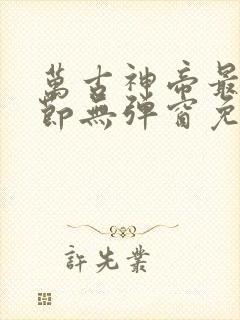 萬古神帝最
節無彈窗免
許先業